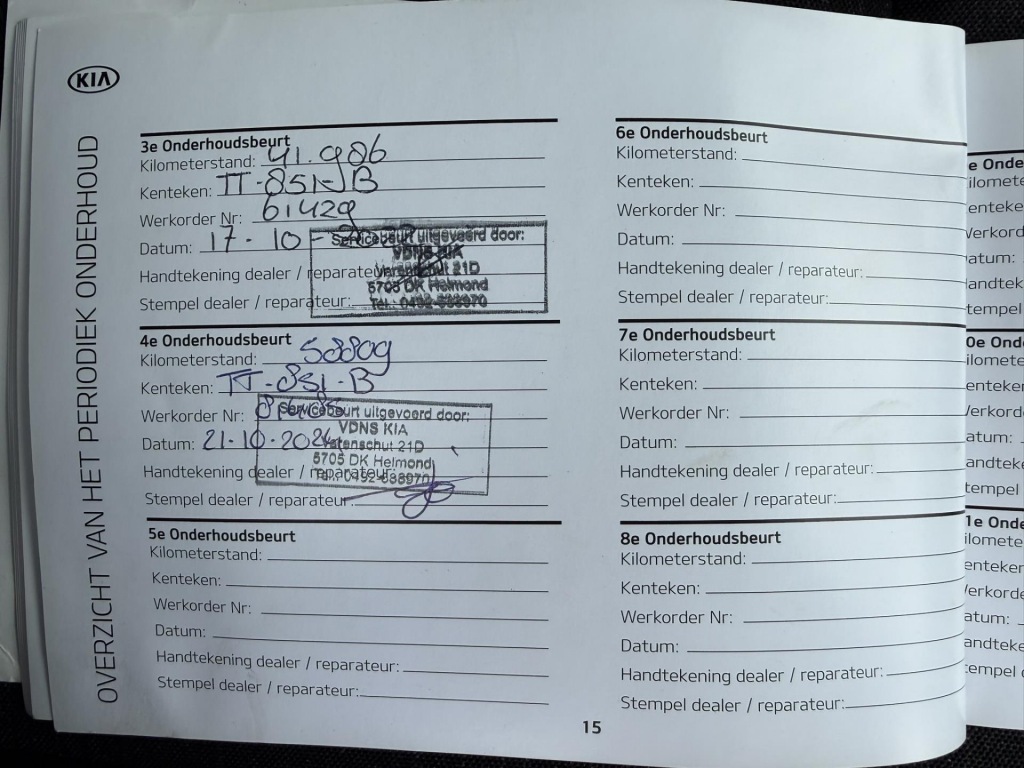 KIA
OVERZICHT VAN HET PERIODIEK ONDERHOUD
3e Onderhoudsbeurt
Kilometerstand: 41.986
Kenteken: TT-851-B
Werkorder Nr: 61429
Datum: 17-10-
Handtekening dealer / reparateur:
Stempel dealer / reparateur:
Servicebeurt uitgevoerd door:
VDNS KIA
Varenschut 21D
5705 DK Helmond
Tel.: 0492-538970
4e Onderhoudsbeurt
Kilometerstand: 58809
Kenteken: TT-851-B
Werkorder Nr:
Datum: 21-10-2024
Handtekening dealer / reparateur:
Stempel dealer / reparateur:
Servicebeurt uitgevoerd door:
VDNS KIA
Varenschut 21D
5705 DK Helmond
Tel.: 0492-538970
5e Onderhoudsbeurt
Kilometerstand:
Kenteken:
Werkorder Nr:
Datum:
Handtekening dealer / reparateur:
Stempel dealer / reparateur:
6e Onderhoudsbeurt
Kilometerstand:
Kenteken:
Werkorder Nr:
Datum:
Handtekening dealer / reparateur:
Stempel dealer / reparateur:
7e Onderhoudsbeurt
Kilometerstand:
Kenteken:
Werkorder Nr:
Datum:
Handtekening dealer / reparateur:
Stempel dealer / reparateur:
8e Onderhoudsbeurt
Kilometerstand:
Kenteken:
Werkorder Nr:
Datum:
Handtekening dealer / reparateur:
Stempel dealer / reparateur:
15